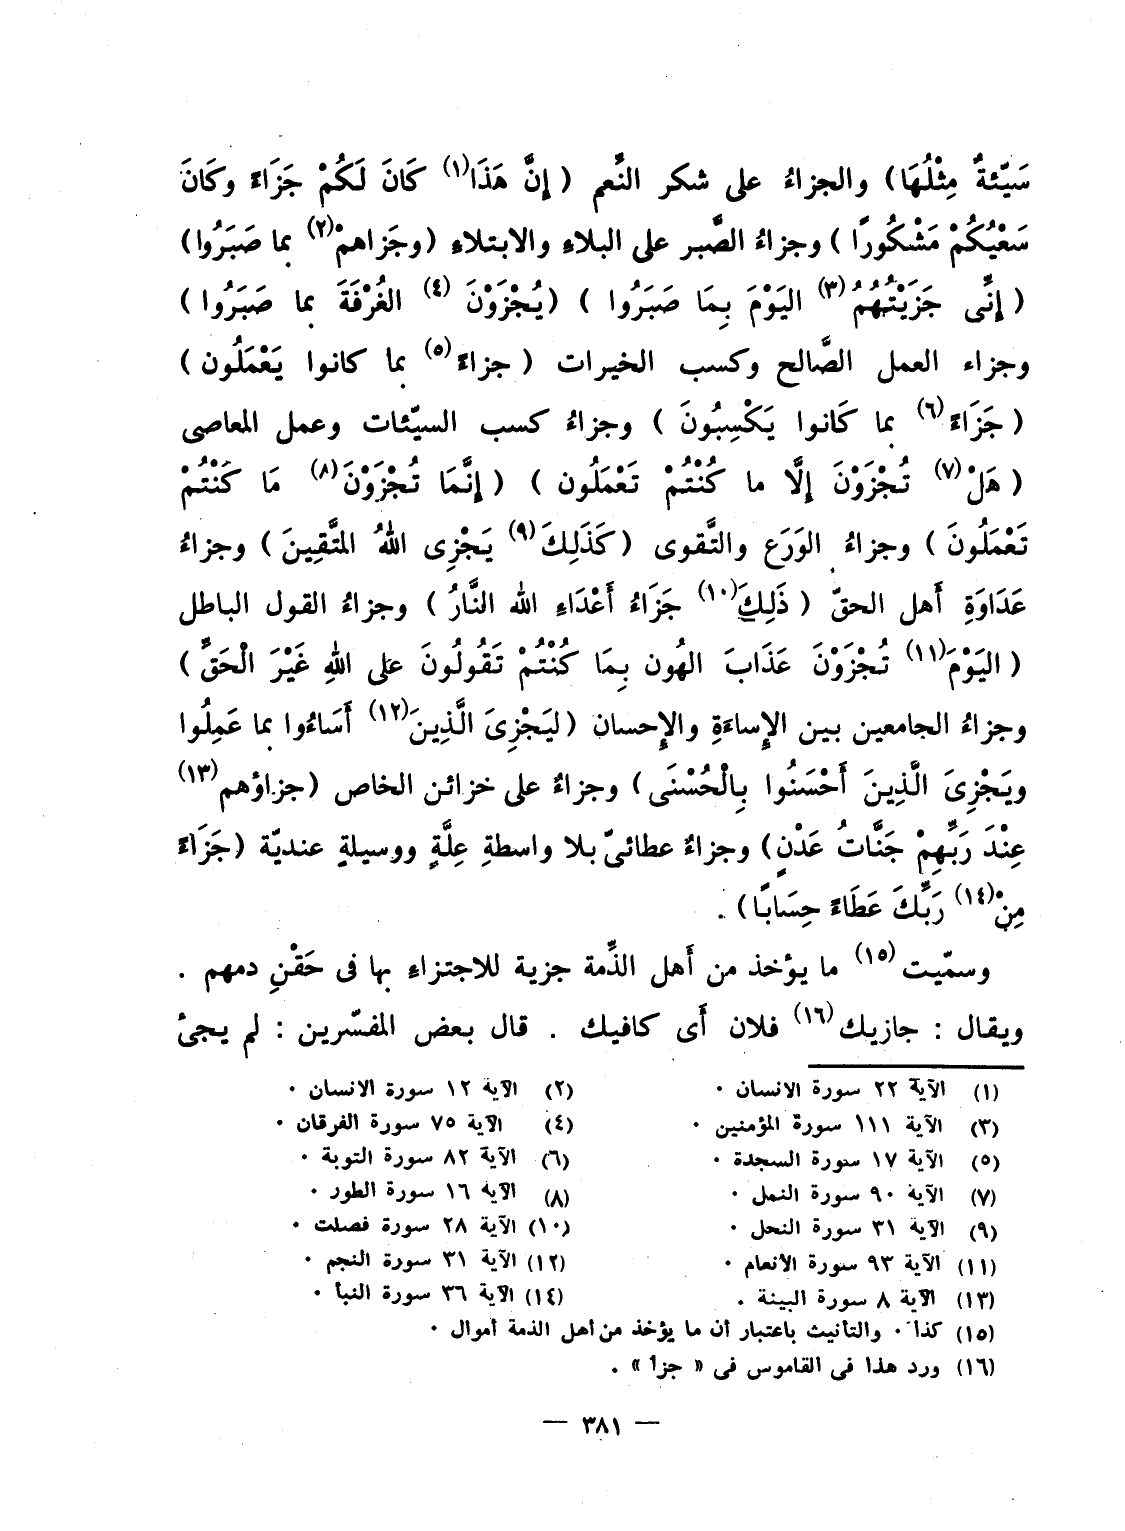 سَيّئةٌ مِثْلُهَا) والجزاءُ على شكر النِّعم (إِنَّ هَذَا(١) كَانَ لَكُمْ جَزَاءً وكَانَ
سَعْيُكُمْ مَشْكُورًا) وجزاءُ الصَّبر على البلاءِ والابتلاءِ (وجَزاهمْ(٢) بما صَبَرُوا)
(إِنِّى جَزَيْتُهُمُ(٣) اليَوْمَ بِمَا صَبَرُوا) (يُجْزَوْنَ(٤) الغُرْفَةَ بما صَبَرُوا)
وجزاء العمل الصَّالح وكسب الخيرات (جزاءً(٥) بما كانوا يَعْمَلُون)
(جَزَاءً(٦) بما كَانوا يَكْسِبُونَ) وجزاءُ كسب السيّئات وعمل المعاصى
(هَلْ(٧) تُجْزَوْنَ إِلَّا ما كُنْتُمْ تَعْمَلُون) (إِنَّمَا تُجْزَوْنَ(٨) مَا كُنْتُمْ
تَعْمَلُونَ) وجزاءُ الوَرَع والتَّقوى (كَذَلِكَ(٩) يَجْزِى اللهُ المتَّقِينَ) وجزاءُ
عَدَاوَةِ أَهل الحقّ (ذَلِكَ(١٠) جَزَاءُ أَعْدَاءِ الله النَّارُ) وجزاءُ القول الباطل
(اليَوْمَ(١١) تُجْزَوْنَ عَذَابَ الهُون بِمَا كُنْتُمْ تَقُولُونَ عَلى اللهِ غَيْرَ الْحَقِّ)
وجزاءُ الجامعين بين الإِساءَةِ والإِحسان (لِيَجْزِىَ الَّذِينَ(١٢) أَسَاءُوا بما عَمِلُوا
ويَجْزِىَ الَّذِينَ أَحْسَنُوا بِالْحُسْنَى) وجزاءٌ على خزائن الخاص (جزاؤهم(١٣)
عِنْدَ رَبِّهِمْ جَنَّاتُ عَدْنٍ) وجزاءٌ عطائىّ بلا واسطةِ عِلَّةٍ ووسيلةٍ عنديّة (جَزَاءً
مِنْ(١٤) رَبِّكَ عَطَاءً حِسَابًا).
وسمّيت(١٥) ما يؤخذ من أَهل الذِّمة جزية للاجتزاءِ بها فى حَقْنِ دمهم .
ويقال : جازيك(١٦) فلان أَى كافيك . قال بعض المفسّرين : لم يجئْ
(١) الآية ٢٢ سورة الانسان . (٢) الآية ١٢ سورة الانسان .
(٣) الآية ١١١ سورة المؤمنين . (٤) الآية ٧٥ سورة الفرقان .
(٥) الآية ١٧ سورة السجدة . (٦) الآية ٨٢ سورة التوبة .
(٧) الآية ٩٠ سورة النمل . (٨) الآية ١٦ سورة الطور .
(٩) الآية ٣١ سورة النحل . (١٠) الآية ٢٨ سورة فصلت .
(١١) الآية ٩٣ سورة الأنعام . (١٢) الآية ٣١ سورة النجم .
(١٣) الآية ٨ سورة البينة . (١٤) الآية ٣٦ سورة النبأ .
(١٥) كذا . والتأنيث باعتبار أن ما يؤخذ من أهل الذمة أموال .
(١٦) ورد هذا فى القاموس فى « جزأ » .
— ٣٨١ —